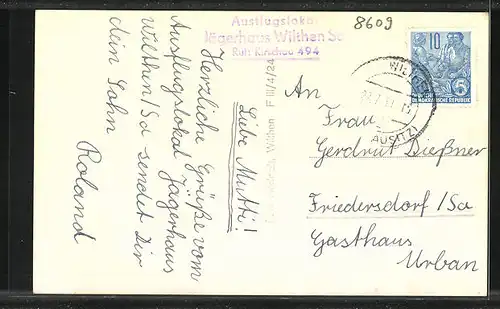 Ausflugslokal
Jägerhaus Wilthen Sa
Ruf: Kirschau 494
8609
10
DEUTSCHE DEMOKRATISCHE REPUBLIK
5
WILTHEN
(LAUSITZ)
Wilthen F III/4/24
Liebe Mutti!
Herzliche Grüße vom
Ausflugslokal Jägerhaus
Wilthen/Sa sendet Dir
dein Sohn Roland
An
Frau
Gerdrut Dießner
Friedersdorf/Sa
Gasthaus
Urban